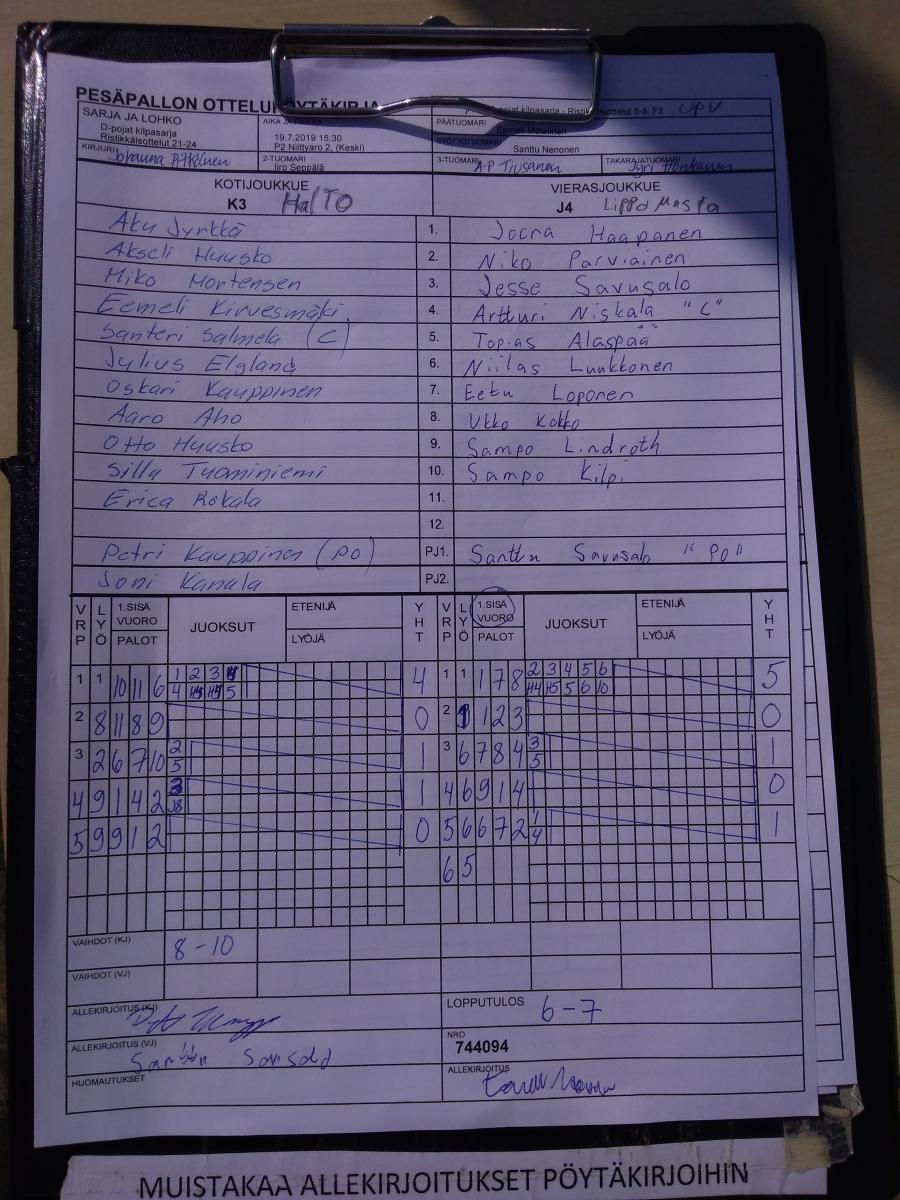 PESÄPALLON OTTELUPÖYTÄKIRJA
SARJA JA LOHKO
D-pojat kilpasarja
Ristikkäisottelut 21-24
AIKA JA PAIKKA
19.7.2019 15:30
P2 Niittyaro 2, (Keski)
D-pojat kilpasarja - Ristikkäisottelut 5-8: F3 UPV
PÄÄTUOMARI
Eemeli Metelinen
SYÖTTÖTUOMARI
Santtu Nenonen
KIRJURI Johanna
2-TUOMARI
Iiro Seppälä
3-TUOMARI A-P Tiusanen
TAKARAJATUOMARI Jyri
KOTIJOUKKUE
K3 HalTo
VIERASJOUKKUE
J4 Lippo Musta
Aku Jyrkkä 1. Joona Haapanen
Akseli Huusko 2. Niko Parviainen
Miko Mortensen 3. Jesse Savusalo
Eemeli Kirvesmäki 4. Artturi Niskala "C"
Santeri Salmela (C) 5. Topias Alaspää
Julius Elgland 6. Niilas Luukkonen
Oskari Kauppinen 7. Eetu Loponen
Aaro Aho 8. Ukko Kokko
Otto Huusko 9. Sampo Lindroth
Silla Tuominiemi 10. Sampo Kilpi
Erica Rokala 11.
12.
Petri Kauppinen (PO) PJ1. Santtu Savusalo "PO"
Joni Kanala PJ2.
VRP LYÖ 1.SISÄ VUORO PALOT JUOKSUT ETENIJÄ LYÖJÄ YHT VRP LYÖ 1.SISÄ VUORO PALOT JUOKSUT ETENIJÄ LYÖJÄ YHT
1 1 10 11 6 1 2 3 4 1 1 1 7 8 2 3 4 5 6 5
2 8 11 8 9 0 2 1 1 2 3 0
3 2 6 7 10 2 5 1 3 6 7 8 4 3 5 1
4 9 1 4 2 1 4 6 9 1 4 0
5 9 9 1 2 0 5 6 6 7 2 1 4 1
6 5
VAIHDOT (KJ) 8-10
VAIHDOT (VJ)
ALLEKIRJOITUS (KJ)
LOPPUTULOS 6-7
ALLEKIRJOITUS (VJ) Santtu Savusalo
NRO
744094
HUOMAUTUKSET
ALLEKIRJOITUS
MUISTAKAA ALLEKIRJOITUKSET PÖYTÄKIRJOIHIN